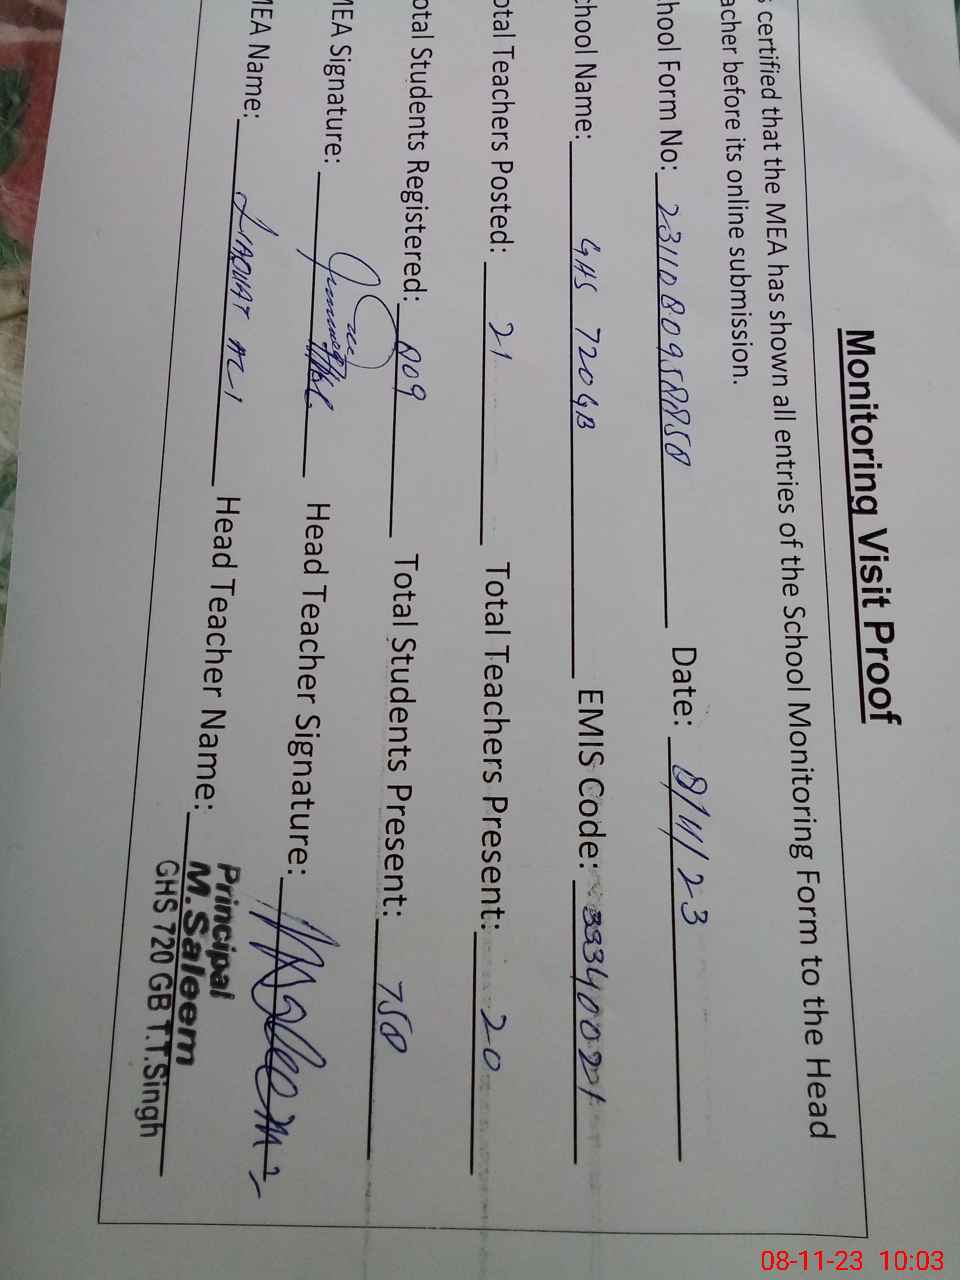 Monitoring Visit Proof
certified that the MEA has shown all entries of the School Monitoring Form to the Head
acher before its online submission.
hool Form No: Date: 8/11/23
chool Name: GHS 720GB EMIS Code: 33340021
otal Teachers Posted: 21 Total Teachers Present: 20
otal Students Registered: 809 Total Students Present: 758
MEA Signature: Head Teacher Signature: M Saleem
MEA Name: LIAQUAT ALI Head Teacher Name:
Principal
M.Saleem
GHS 720 GB T.T.Singh
08-11-23 10:03